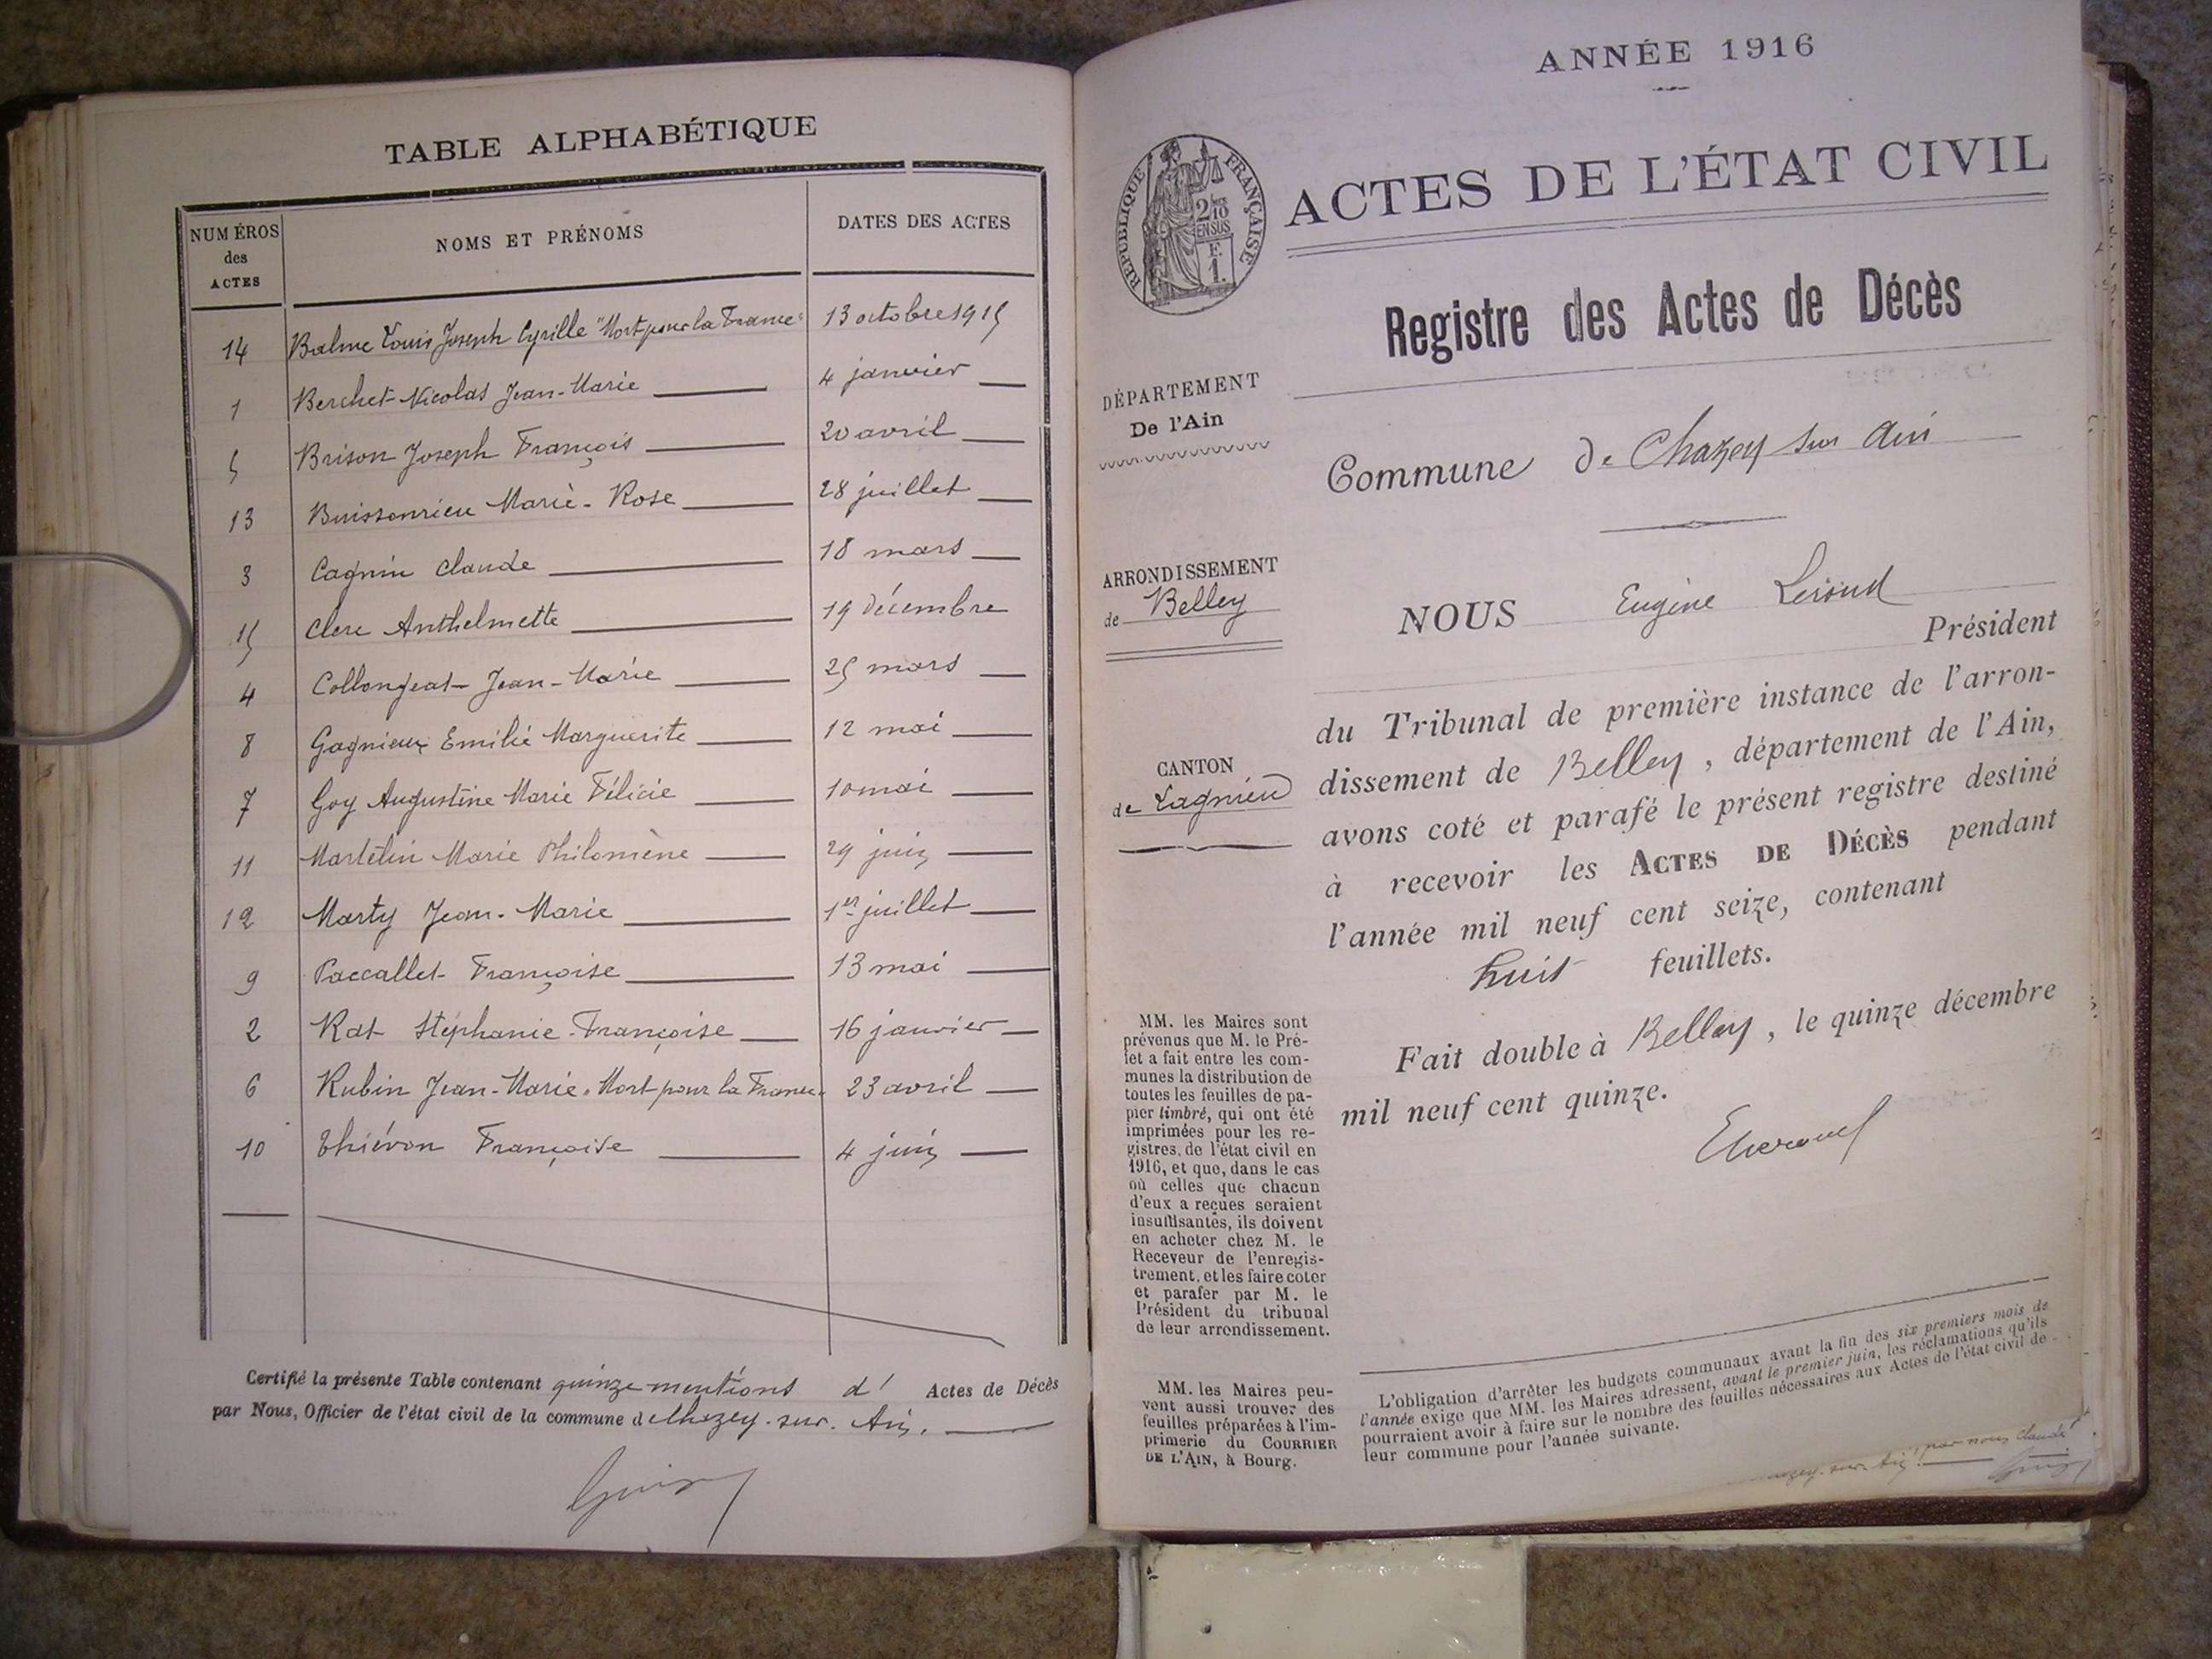 TABLE ALPHABÉTIQUE
NUMÉROS des ACTES NOMS ET PRÉNOMS DATES DES ACTES
14 Balme Louis Joseph Cyrille "Mort pour la France" 13 octobre 1915
1 Berchet Nicolas Jean-Marie 4 janvier
5 Brison Joseph François 20 avril
13 Buissonrieu Marie-Rose 28 juillet
3 Cagnin Claude 18 mars
15 Clerc Anthelmette 19 décembre
4 Collongeat Jean-Marie 25 mars
8 Gagnieux Emilie Marguerite 12 mai
7 Goy Augustine Marie Félicie 10 mai
11 Martelin Marie Philomène 29 juin
12 Marty Jean-Marie 1er juillet
9 Paccallet Françoise 13 mai
2 Rat Stéphanie Françoise 16 janvier
6 Rubin Jean-Marie "Mort pour la France" 23 avril
10 Thiévon Françoise 4 juin
Certifié la présente Table contenant quinze mentions d' Actes de Décès
par Nous, Officier de l'état civil de la commune de Chazey-sur-Ain.
ANNÉE 1916
RÉPUBLIQUE FRANÇAISE
2/10 EN SUS
F.
1.
ACTES DE L'ÉTAT CIVIL
Registre des Actes de Décès
DÉPARTEMENT
De l'Ain
Commune de Chazey sur Ain
ARRONDISSEMENT
de Belley
NOUS Eugène
Président
du Tribunal de première instance de l'arron-
dissement de Belley, département de l'Ain,
avons coté et parafé le présent registre destiné
à recevoir les ACTES DE DÉCÈS pendant
l'année mil neuf cent seize, contenant
huit feuillets.
Fait double à Belley, le quinze décembre
mil neuf cent quinze.
CANTON
de Lagnieu
MM. les Maires sont
prévenus que M. le Pré-
fet a fait entre les com-
munes la distribution de
toutes les feuilles de pa-
pier timbré, qui ont été
imprimées pour les re-
gistres de l'état civil en
1916, et que, dans le cas
où celles que chacun
d'eux a reçues seraient
insuffisantes, ils doivent
en acheter chez M. le
Receveur de l'enregis-
trement, et les faire coter
et parafer par M. le
Président du tribunal
de leur arrondissement.
MM. les Maires peu-
vent aussi trouver des
feuilles préparées à l'im-
primerie du COURRIER
DE L'AIN, à Bourg.
L'obligation d'arrêter les budgets communaux avant la fin des six premiers mois de
l'année exige que MM. les Maires adressent, avant le premier juin, les réclamations qu'ils
pourraient avoir à faire sur le nombre des feuilles nécessaires aux Actes de l'état civil de
leur commune pour l'année suivante.
par nous Claude